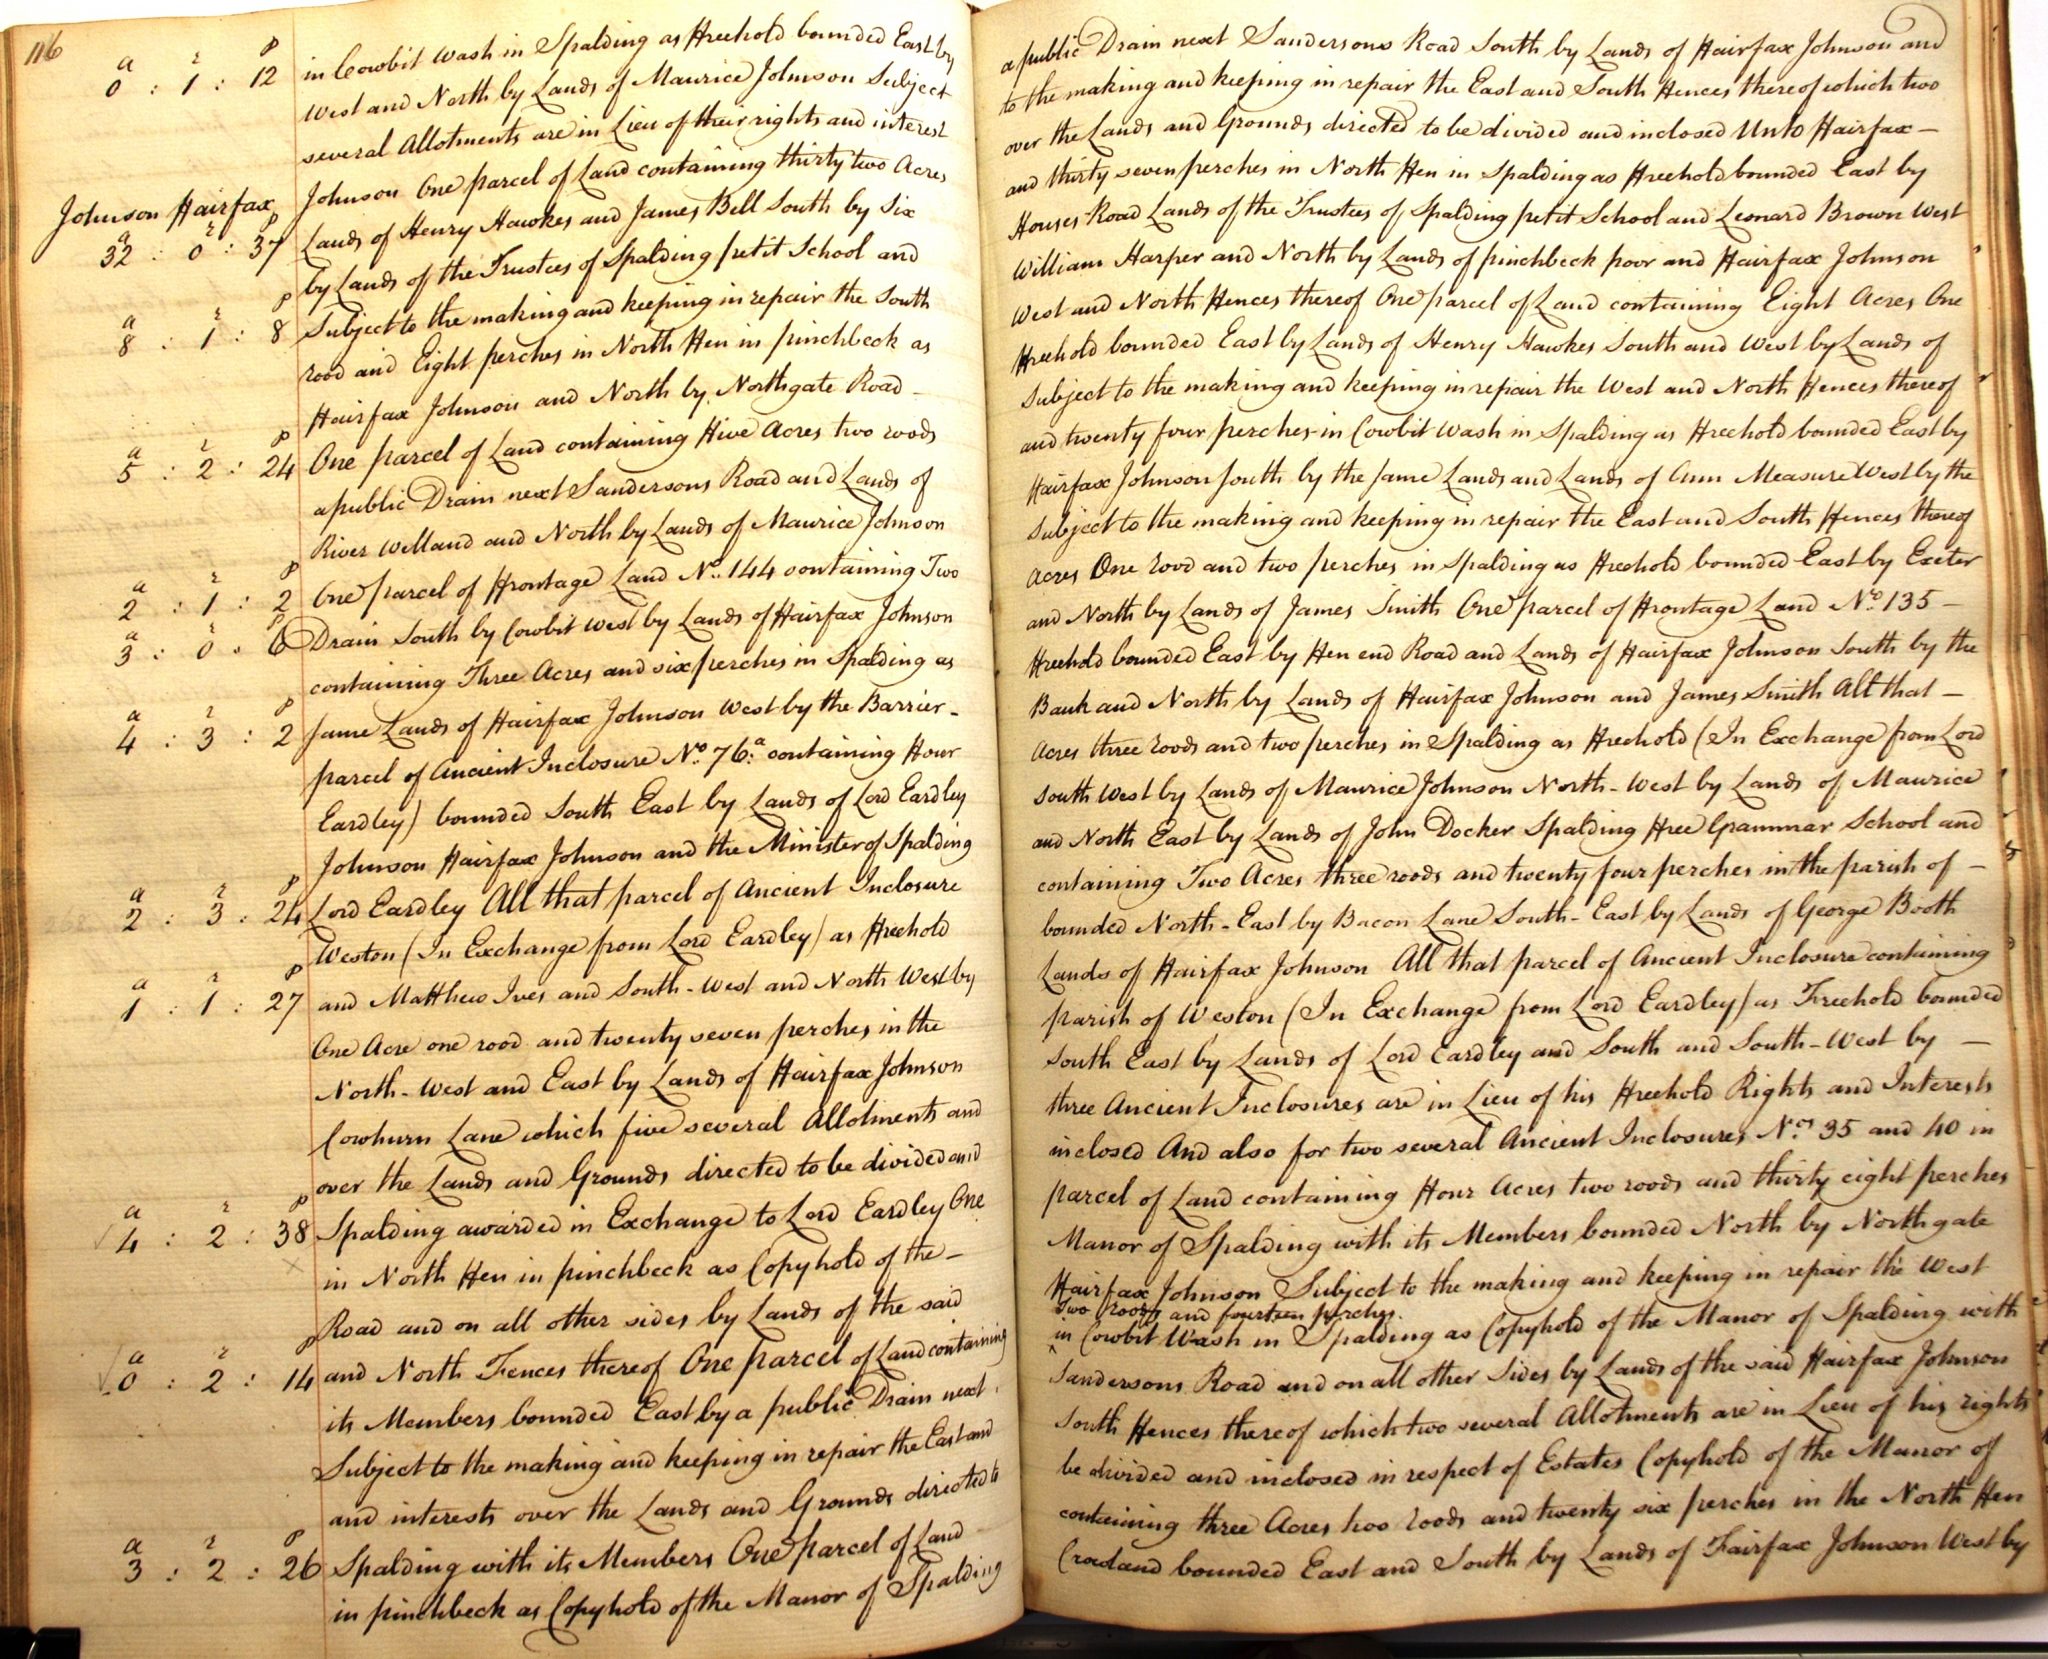 116
a r p
0 : 1 : 12 in Cowbit Wash in Spalding as Freehold bounded East by a public Drain next Sandersons Road South by Lands of Fairfax Johnson and
West and North by Lands of Maurice Johnson Subject to the making and keeping in repair the East and South Fences thereof which two
several Allotments are in Lieu of their rights and interest over the Lands and Grounds directed to be divided and inclosed Unto Fairfax —
Johnson Fairfax Johnson One parcel of Land containing thirty two Acres and thirty seven perches in North Fen in Spalding as Freehold bounded East by
a r p
32 : 0 : 37 Lands of Henry Hawkes and James Bell South by Six Houses Road Lands of the Trustees of Spalding petit School and Leonard Brown West
by Lands of the Trustees of Spalding petit School and William Harper and North by Lands of pinchbeck poor and Fairfax Johnson
a r p
8 : 1 : 8 Subject to the making and keeping in repair the South West and North Fences thereof One parcel of Land containing Eight Acres One
rood and Eight perches in North Fen in pinchbeck as Freehold bounded East by Lands of Henry Hawkes South and West by Lands of
Fairfax Johnson and North by Northgate Road — Subject to the making and keeping in repair the West and North Fences thereof
a r p
5 : 2 : 24 One parcel of Land containing Five Acres two roods and twenty four perches in Cowbit Wash in Spalding as Freehold bounded East by
a public Drain next Sandersons Road and Lands of Fairfax Johnson South by the same Lands and Lands of Ann Measure West by the
River Welland and North by Lands of Maurice Johnson Subject to the making and keeping in repair the East and South Fences thereof
a r p
2 : 1 : 2 One parcel of Frontage Land No. 144 containing Two Acres One rood and two perches in Spalding as Freehold bounded East by Exeter
a r p
3 : 0 : 6 Drain South by Cowbit West by Lands of Fairfax Johnson and North by Lands of James Smith One parcel of Frontage Land No. 135 —
containing Three Acres and six perches in Spalding as Freehold bounded East by Fen end Road and Lands of Fairfax Johnson South by the
a r p
4 : 3 : 2 same Lands of Fairfax Johnson West by the Barrier — Bank and North by Lands of Fairfax Johnson and James Smith All that —
parcel of Ancient Inclosure No. 76.a containing Four Acres three roods and two perches in Spalding as Freehold (In Exchange from Lord
Eardley) bounded South East by Lands of Lord Eardley South West by Lands of Maurice Johnson North-West by Lands of Maurice
Johnson Fairfax Johnson and the Minister of Spalding and North East by Lands of John Docker Spalding Free Grammar School and
a r p
2 : 3 : 24 Lord Eardley All that parcel of Ancient Inclosure containing Two Acres three roods and twenty four perches in the parish of —
Weston (In Exchange from Lord Eardley) as Freehold bounded North-East by Bacon Lane South-East by Lands of George Booth
a r p
1 : 1 : 27 and Matthew Ives and South-West and North West by Lands of Fairfax Johnson All that parcel of Ancient Inclosure containing
One Acre one rood and twenty seven perches in the parish of Weston (In Exchange from Lord Eardley) as Freehold bounded
North-West and East by Lands of Fairfax Johnson South East by Lands of Lord Eardley and South and South-West by —
Cowhurn Lane which five several Allotments and three Ancient Inclosures are in Lieu of his Freehold Rights and Interests
over the Lands and Grounds directed to be divided and inclosed And also for two several Ancient Inclosures Nos. 35 and 40 in
a r p
4 : 2 : 38 Spalding awarded in Exchange to Lord Eardley One parcel of Land containing Four Acres two roods and thirty eight perches
in North Fen in pinchbeck as Copyhold of the — Manor of Spalding with its Members bounded North by Northgate
Road and on all other sides by Lands of the said Fairfax Johnson Subject to the making and keeping in repair the West
a r p
0 : 2 : 14 and North Fences thereof One parcel of Land containing Two roods and fourteen perches in Cowbit Wash in Spalding as Copyhold of the Manor of Spalding with
its Members bounded East by a public Drain next Sandersons Road and on all other Sides by Lands of the said Fairfax Johnson
Subject to the making and keeping in repair the East and South Fences thereof which two several Allotments are in Lieu of his rights
and interests over the Lands and Grounds directed to be divided and inclosed in respect of Estates Copyhold of the Manor of
a r p
3 : 2 : 26 Spalding with its Members One parcel of Land containing three Acres two roods and twenty six perches in the North Fen
in pinchbeck as Copyhold of the Manor of Spalding Croland bounded East and South by Lands of Fairfax Johnson West by